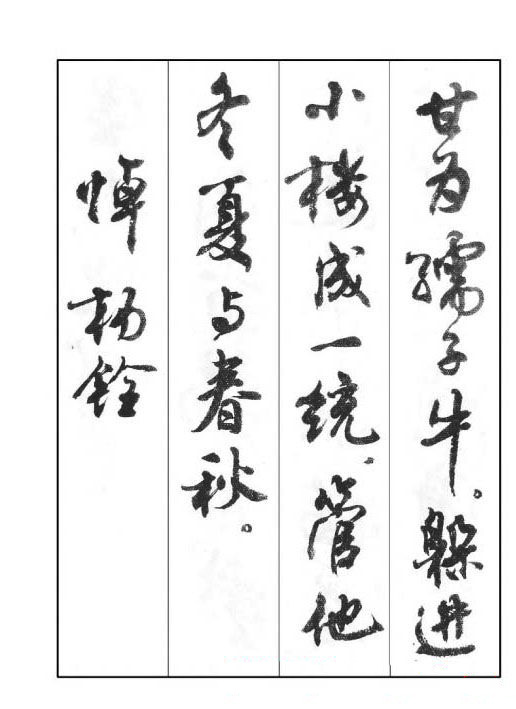 甘为孺子牛。躲进
小楼成一统，管他
冬夏与春秋。
悼杨铨